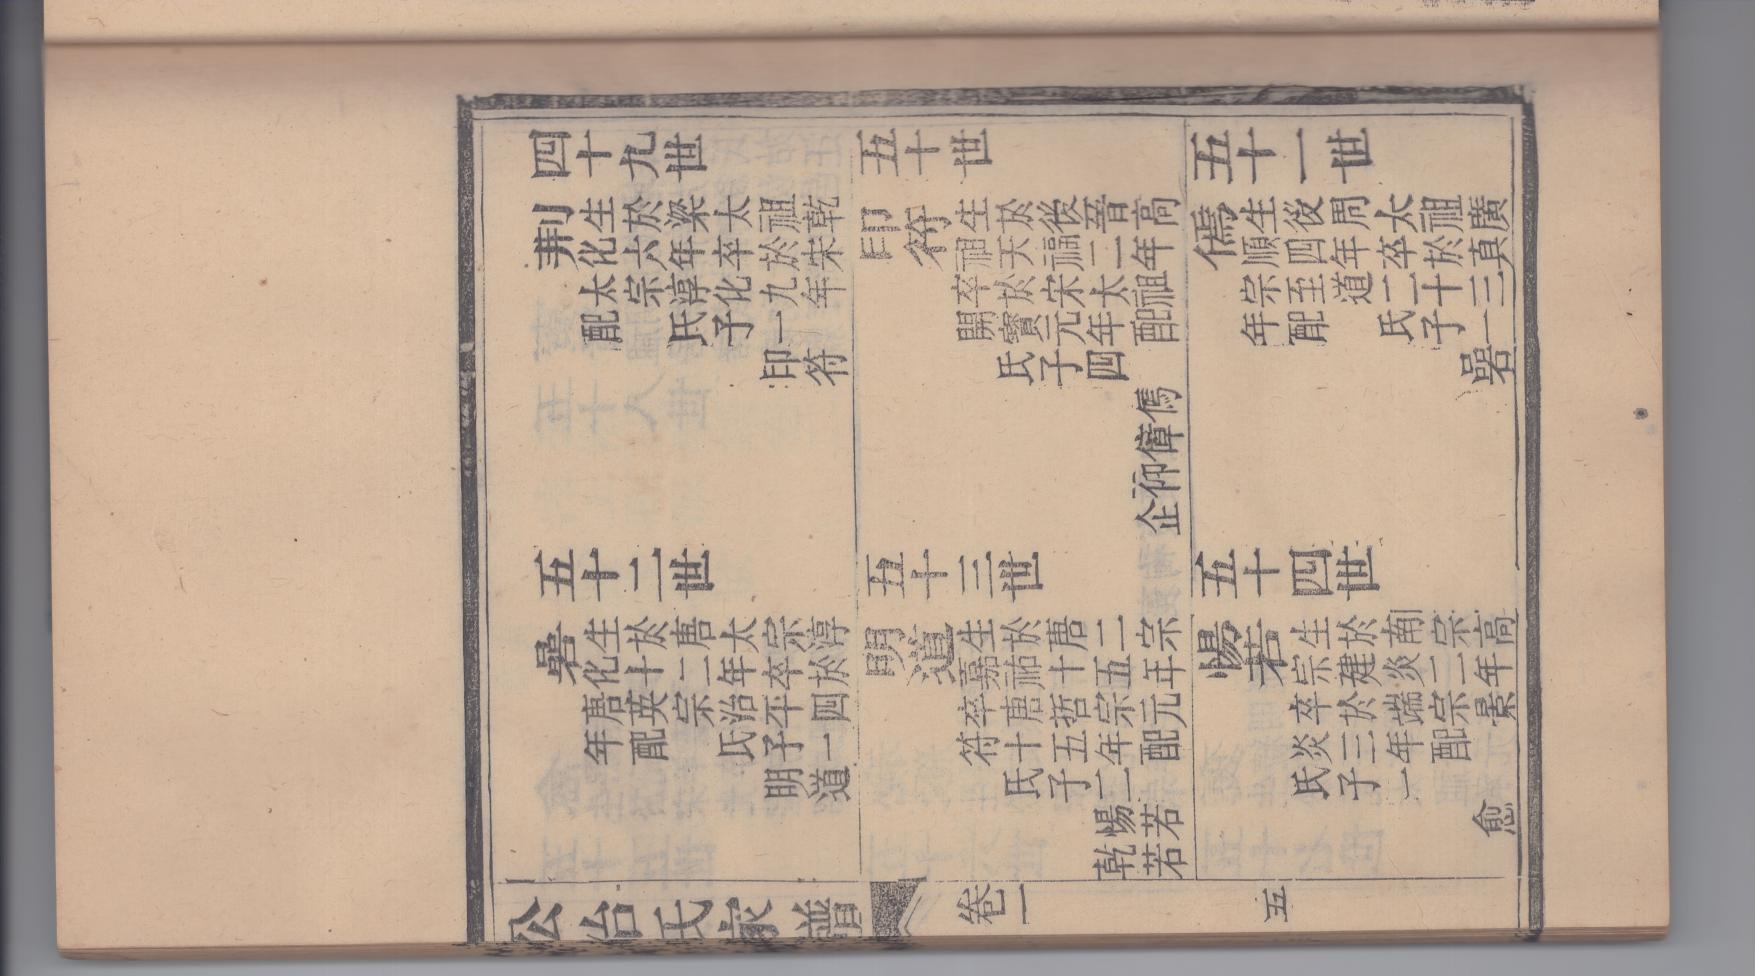 四十九世
荆
生於梁太祖乾
化六年卒於宋
太宗淳化九年
配 氏子一
印符
五十世
印符
生於後晉高
祖天福二年
卒於宋太祖
開寶元年配
氏子四
儰
偉
仰
企
五十一世
儰
生後周太祖廣
順四年卒於真
宗至道二十三
年配 氏子一
碞
五十二世
碞
生於唐太宗淳
化十二年卒於
唐英宗治平四
年配 氏子一
明道
五十三世
明道
生於唐二宗
嘉祐十五年
卒唐哲宗元
符十五年配
氏子二
惕若
乾若
五十四世
惕若
生於南宗高
宗建炎二年
卒於端宗景
炎三年配
氏子一
愈
公台氏家譜 卷一 五